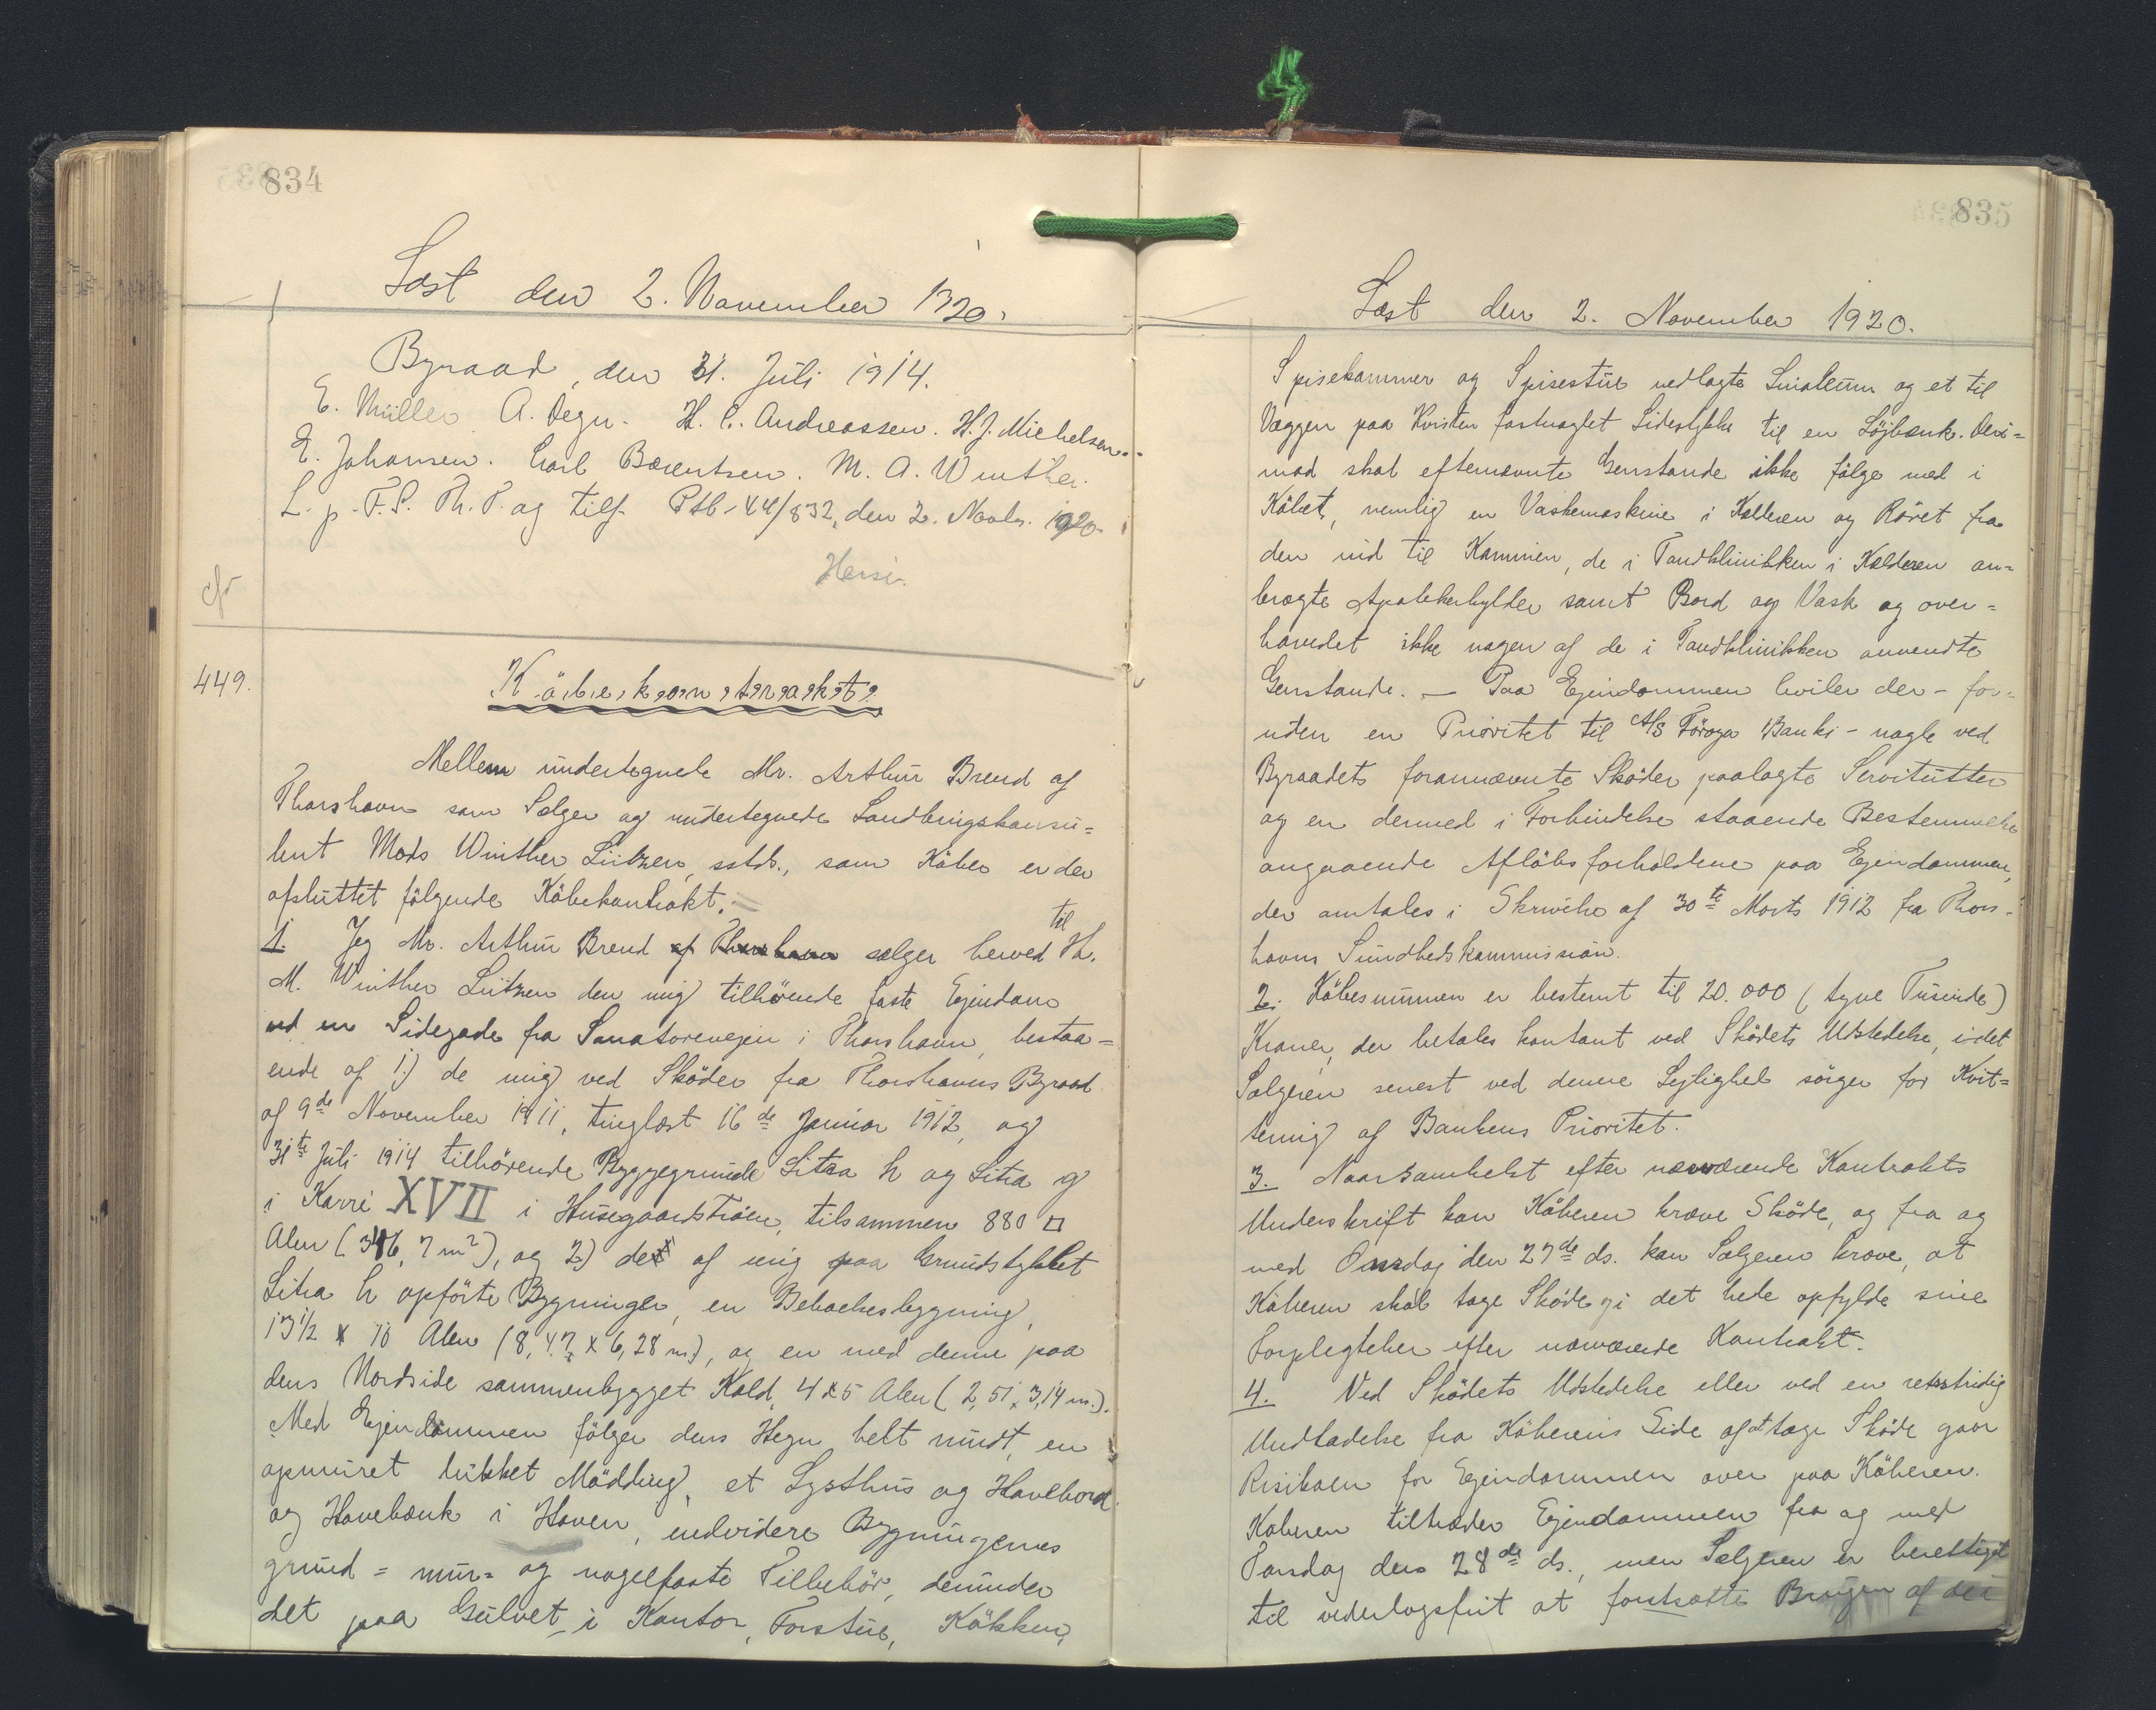 834
Læst den 2. November 1920.
Byraad, den 31. Juli 1914.
E. Müller A. Degn. H. C. Andreassen. H. J. Michelsen.
E. Johansen. Carl Bærentsen. M. A. Winther.
L. p. F. S. Th. P. og tilf. Ptb. 44/832, den 2. Novbr. 1920.
cfr
449.
Köbekontrakt.
Mellem undertegnede Mr. Arthur Brend af
Thorshavn som Sælger og undertegnede Landbrugskonsu=
lent Mads Winther Lützen, sstds., som Köber er der
afsluttet fölgende Köbekontrakt.
1. Jeg Mr. Arthur Brend af Thorshavn sælger herved til Hr.
M. Winther Lützen den mig tilhörende faste Ejendom
ved en Sidegade fra Sanatorievejen i Thorshavn, bestaa=
ende af 1) de mig ved Sköder fra Thorshavns Byraad
af 9de November 1911, tinglæst 16de Januar 1912, og
31te Juli 1914 tilhörende Byggegrunde Litra h og Litra g
i Karré XVII i Husegaardströen, tilsammen 880 □
Alen (346,7 m²), og 2) de af mig paa Grundstykket
Litra h opförte Bygninger, en Beboelsesbygning,
13½ x 10 Alen (8,47 x 6,28 m), og en med denne paa
dens Nordside sammenbygget Kold, 4 x 5 Alen (2,51 x 3,14 m.).
Med Ejendommen fölger dens Hegn helt rundt, en
opmuret lukket Mödding, et Lysthus og Havebord
og Havebænk i Haven, endvidere Bygningernes
grund= mur= og nagelfaste Tilbehör, derunder
det paa Gulvet i Kontor, Forstue, Kökken,
835
Læst den 2. November 1920.
Spisekammer og Spisestue vedlagte Linoleum og et til
Væggen paa Kvisten fastnaglet Sidestykke til en Löjbænk. Deri=
mod skal efternævnte Genstande ikke fölge med i
Köbet, nemlig en Vaskemaskine i Kælderen og Röret fra
den ind til Kaminen, de i Tandklinikken i Kælderen an=
bragte Apotekerhylder samt Bord og Vask og over=
hovedet ikke nogen af de i Tandklinikken anvendte
Genstande. — Paa Ejendommen hviler der – for=
uden en Prioritet til A/S Föroya Banki – nogle ved
Byraadets forannævnte Sköder paalagte Servitutter
og en dermed i Forbindelse staaende Bestemmelse
angaaende Aflöbsforholdene paa Ejendommen,
der omtales i Skrivelse af 30te Marts 1912 fra Thors-
havns Sundhedskommission.
2. Köbesummen er bestemt til 20.000 (tyve Tusinde)
Kroner, der betales kontant ved Sködets Udstedelse, idet
Sælgeren senest ved denne Lejlighed sörger for Kvit=
tering af Bankens Prioritet.
3. Naarsomhelst efter nærværende Kontrakts
Underskrift kan Köberen kræve Sköde, og fra og
med Onsdag den 27de ds. kan Sælgeren kræve, at
Köberen skal tage Sköde og i det hele opfylde sine
Forpligtelser efter nærværende Kontrakt.
4. Ved Sködets Udstedelse eller ved en retsstridig
Undladelse fra Köberens Side af at tage Sköde gaar
Risikoen for Ejendommen over paa Köberen.
Köberen tiltræder Ejendommen fra og med
Torsdag den 28de ds., men Sælgeren er berettiget
til vederlagsfrit at fortsætte Brugen af det